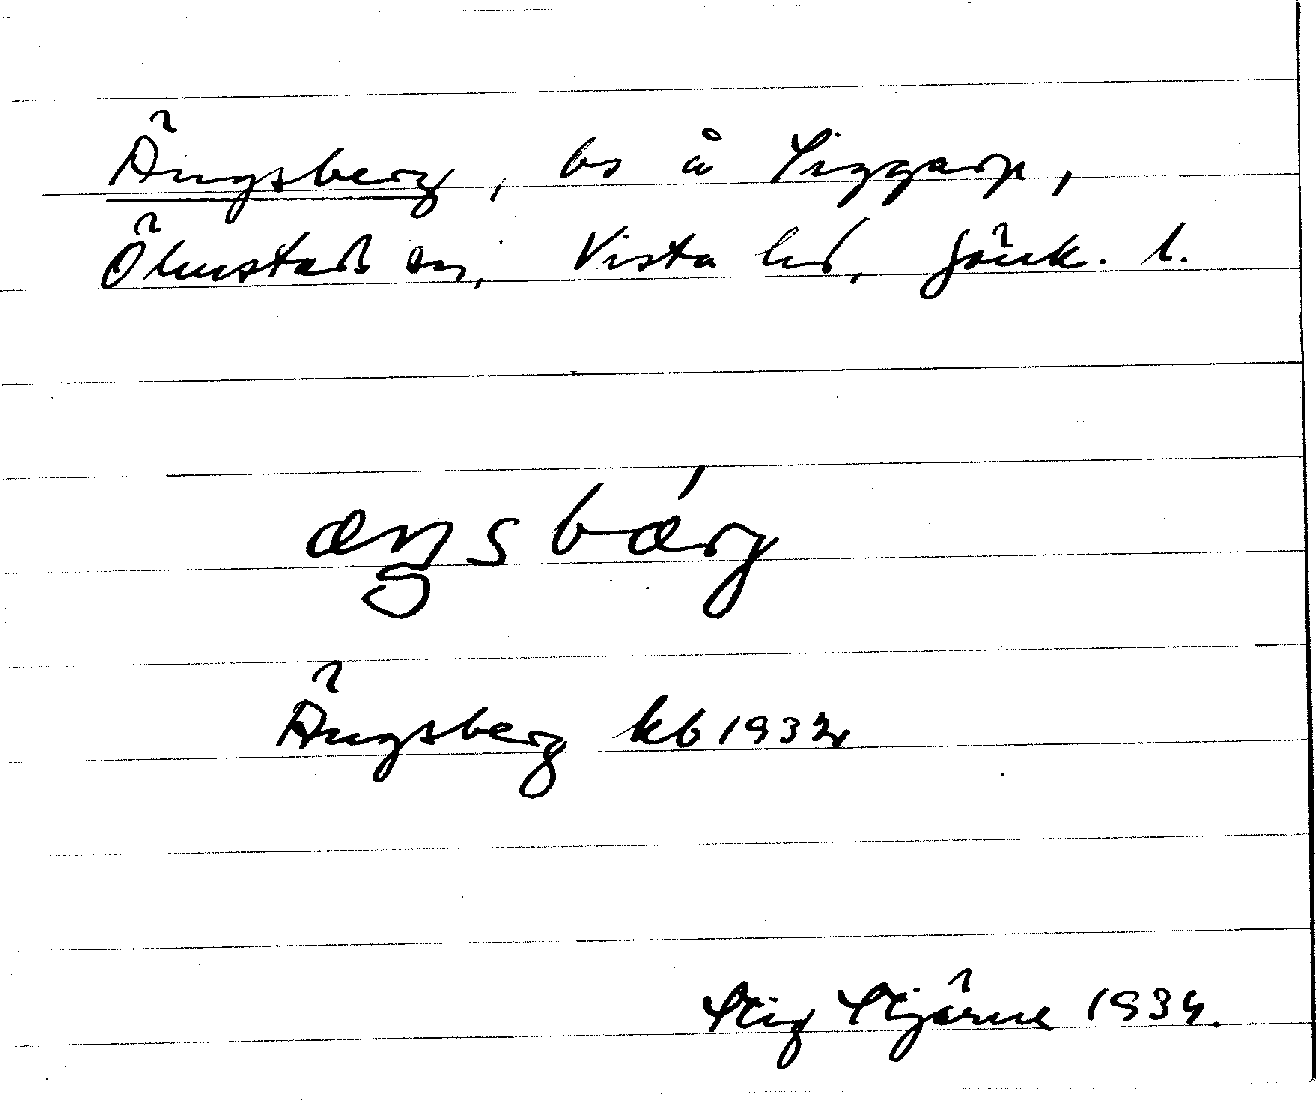 Ängsberg, bs å Siggarp,
Ölmstad sn, Vista hd, Jönk. l.
æŋsbærg
Ängsberg kb 1932
Stig Stjärne 1934.